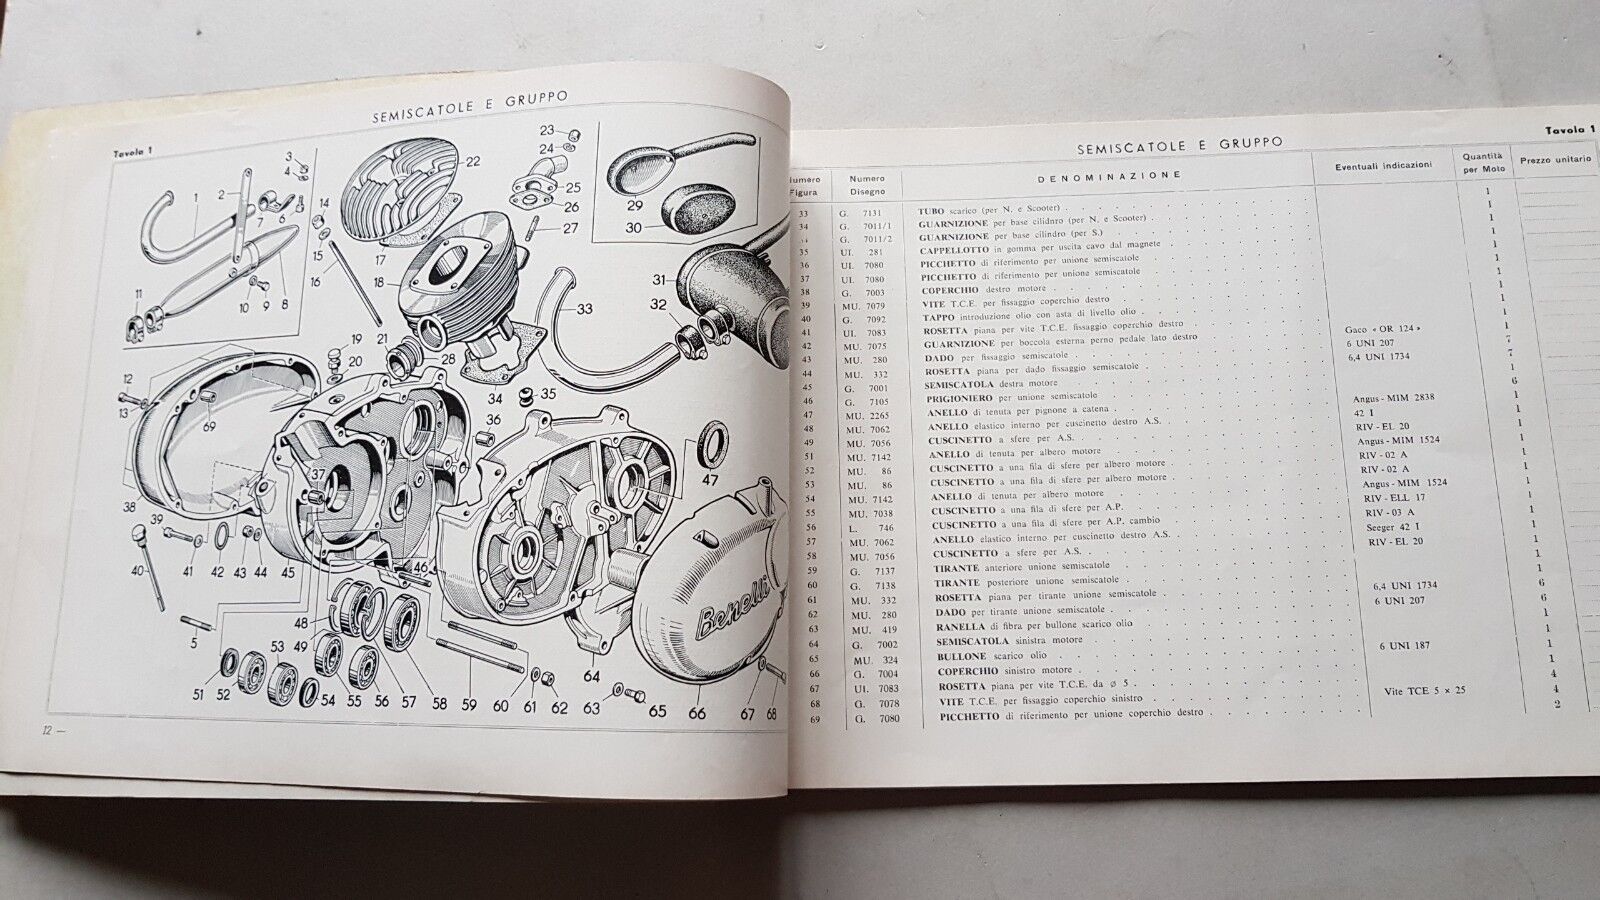 SEMISCATOLE E GRUPPO
Tavola 1
1
2
3
4
5
6
7
8
9
10
11
12
13
14
15
16
17
18
19
20
21
22
23
24
25
26
27
28
29
30
31
32
33
34
35
36
37
38
39
40
41
42
43
44
45
46
47
48
49
51
52
53
54
55
56
57
58
59
60
61
62
63
64
65
66
67
68
69
Benelli
12 —
SEMISCATOLE E GRUPPO
Tavola 1
Figura
Numero Disegno
DENOMINAZIONE
Eventuali indicazioni
Quantità per Moto
Prezzo unitario
33 G. 7131 TUBO scarico (per N. e Scooter) 1
34 G. 7011/1 GUARNIZIONE per base cilidnro (per N. e Scooter) 1
G. 7011/2 GUARNIZIONE per base cilindro (per S.) 1
35 UI. 281 CAPPELLOTTO in gomma per uscita cavo dal magnete 1
36 UI. 7080 PICCHETTO di riferimento per unione semiscatole 1
37 UI. 7080 PICCHETTO di riferimento per unione semiscatole 1
38 G. 7003 COPERCHIO destro motore 1
39 MU. 7079 VITE T.C.E. per fissaggio coperchio destro
40 G. 7092 TAPPO introduzione olio con asta di livello olio
41 UI. 7083 ROSETTA piana per vite T.C.E. fissaggio coperchio destro
42 MU. 7075 GUARNIZIONE per boccola esterna perno pedale lato destro Gaco « OR 124 » 1
43 MU. 280 DADO per fissaggio semiscatole 6 UNI 207 7
44 MU. 332 ROSETTA piana per dado fissaggio semiscatole 6,4 UNI 1734 7
45 G. 7001 SEMISCATOLA destra motore 1
46 G. 7105 PRIGIONIERO per unione semiscatole 6
47 MU. 2265 ANELLO di tenuta per pignone a catena Angus - MIM 2838 1
48 MU. 7062 ANELLO elastico interno per cuscinetto destro A.S. 42 I 1
49 MU. 7056 CUSCINETTO a sfere per A.S. RIV - EL 20 1
51 MU. 7142 ANELLO di tenuta per albero motore Angus - MIM 1524 1
52 MU. 86 CUSCINETTO a una fila di sfere per albero motore RIV - 02 A 1
53 MU. 86 CUSCINETTO a una fila di sfere per albero motore RIV - 02 A 1
54 MU. 7142 ANELLO di tenuta per albero motore Angus - MIM 1524 1
55 MU. 7038 CUSCINETTO a una fila di sfere per A.P. RIV - ELL 17 1
56 L. 746 CUSCINETTO a una fila di sfere per A.P. cambio RIV - 03 A 1
57 MU. 7062 ANELLO elastico interno per cuscinetto destro A.S. Seeger 42 I 1
58 MU. 7056 CUSCINETTO a sfere per A.S. RIV - EL 20 1
59 G. 7137 TIRANTE anteriore unione semiscatole 1
60 G. 7138 TIRANTE posteriore unione semiscatole 1
61 MU. 332 ROSETTA piana per tirante unione semiscatole 6,4 UNI 1734 6
62 MU. 280 DADO per tirante unione semiscatole 6 UNI 207 6
63 MU. 419 RANELLA di fibra per bullone scarico olio 1
64 G. 7002 SEMISCATOLA sinistra motore 1
65 MU. 324 BULLONE scarico olio 6 UNI 187 1
66 G. 7004 COPERCHIO sinistro motore 1
67 UI. 7083 ROSETTA piana per vite T.C.E. da ø 5 4
68 G. 7078 VITE T.C.E. per fissaggio coperchio sinistro Vite TCE 5 x 25 4
69 G. 7080 PICCHETTO di riferimento per unione coperchio destro 2